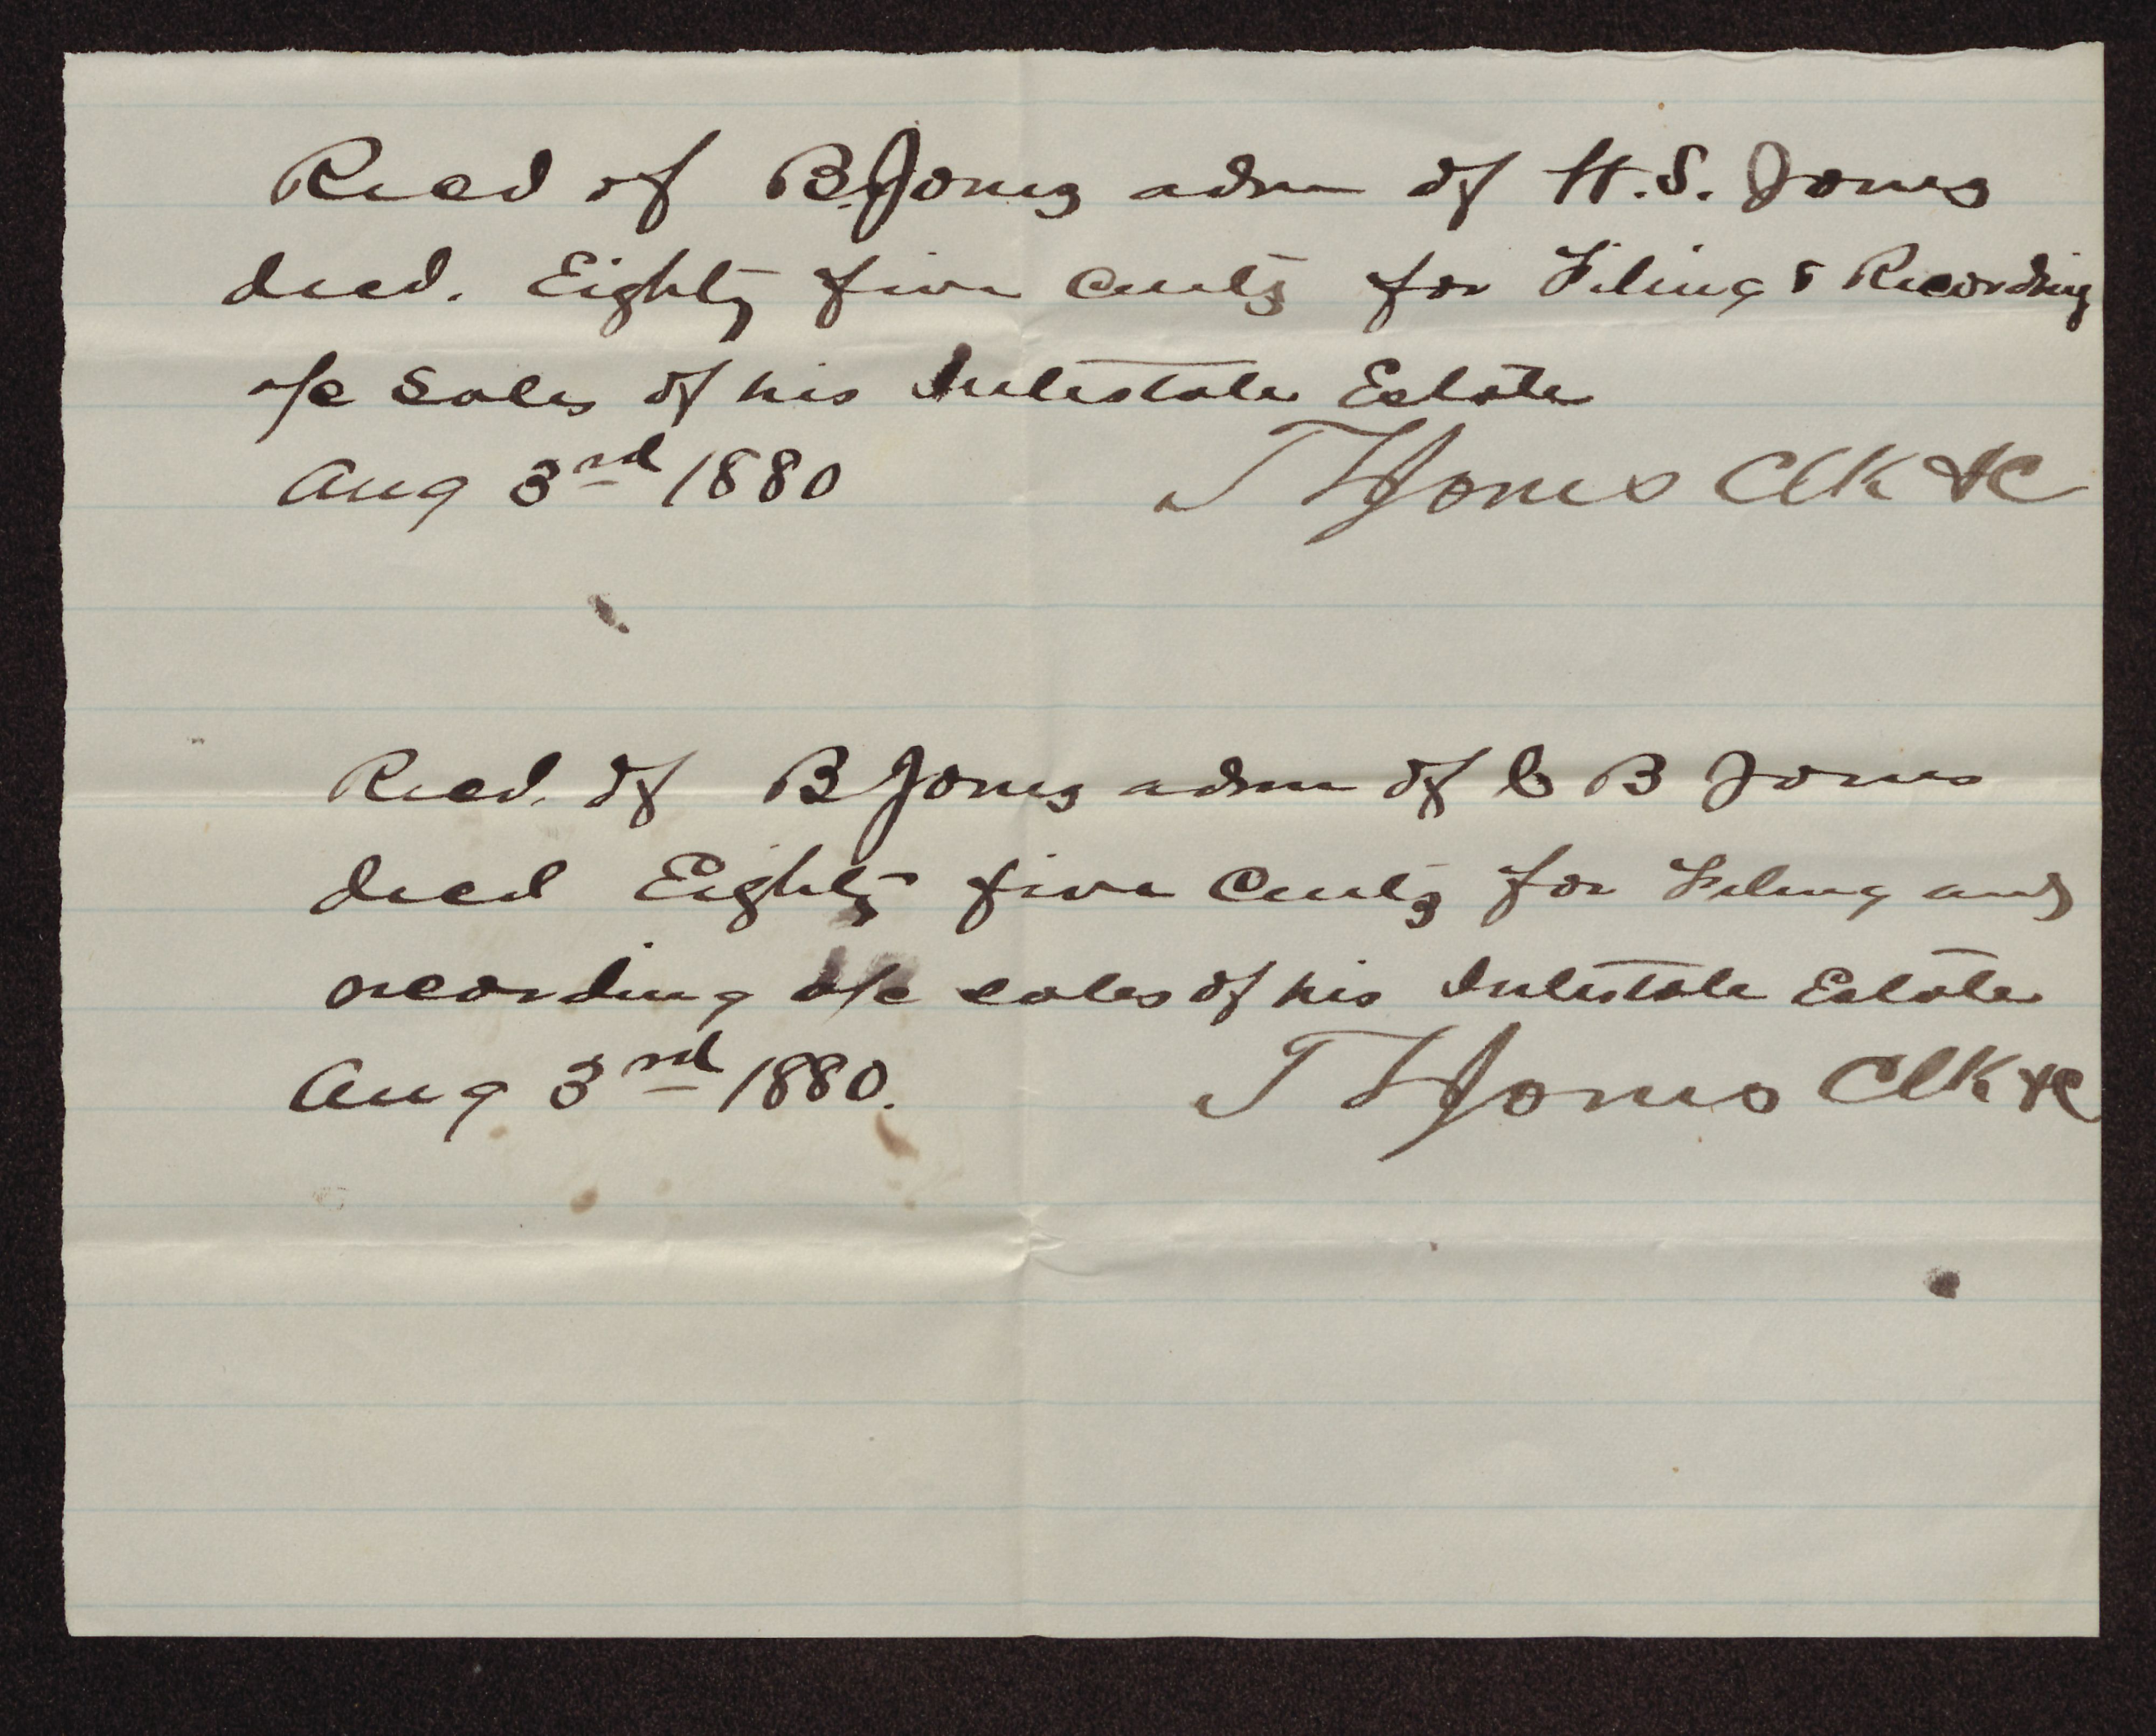 Recd of B. Jones adm of H. S. Jones
decd. Eighty five cents for Filing & Recording
a/c Sales of his Intestate Estate
Aug 3rd 1880 T H Jones Clk &c
Recd. of B Jones adm of C B Jones
decd Eighty five Cents for Filing and
recording a/c sales of his Intestate Estate
Aug 3rd 1880. T H Jones Clk &c